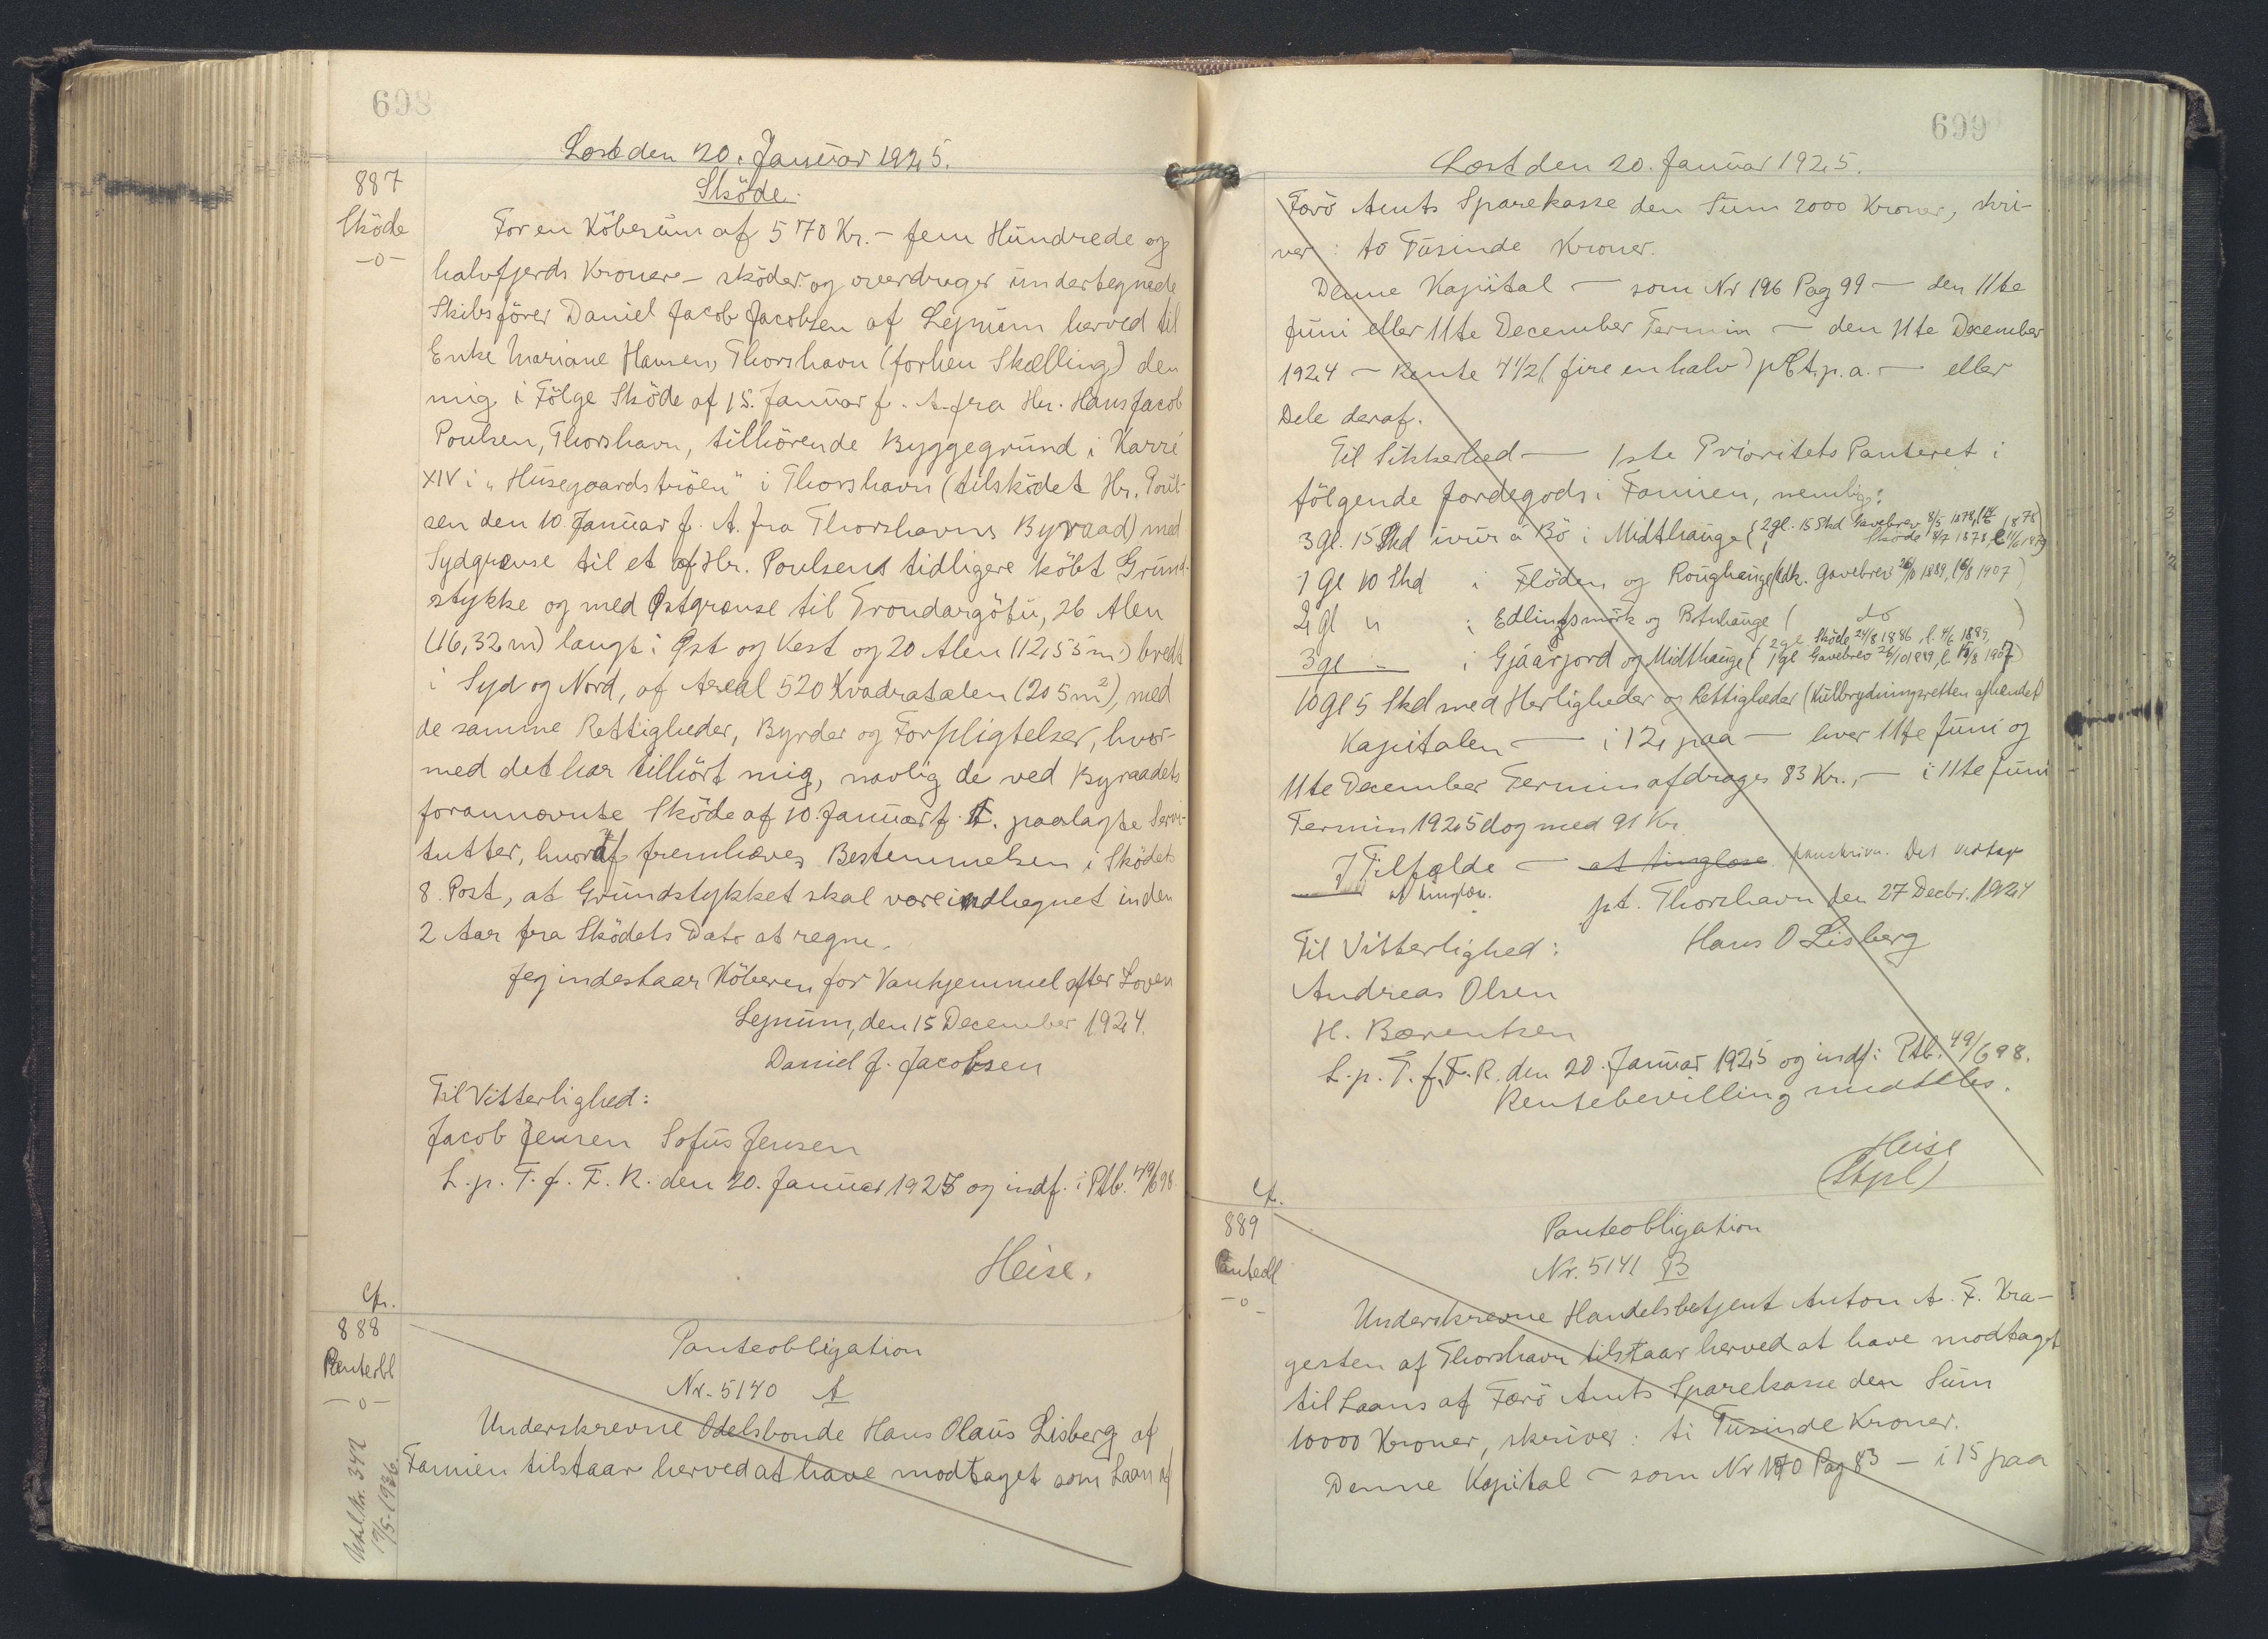 698
Læst den 20. Januar 1925.
887
Sköde
-o-
Sköde.
For en Köbesum af 570 Kr. - fem Hundrede og
halvfjerds Kroner - sköder og overdrager undertegnede
Skibsförer Daniel Jacob Jacobsen af Lejnum herved til
Enke Mariane Hansen, Thorshavn (forhen Skælling) den
mig i Fölge Sköde af 15. Januar f. A. fra Hr. Hans Jacob
Poulsen, Thorshavn, tilhörende Byggegrund i Karré
XIV i "Husegaardströen" i Thorshavn (tilsködet Hr. Poul-
sen den 10. Januar f. A. fra Thorshavns Byraad) med
Sydgrænse til et af Hr. Poulsens tidligere köbt Grund-
stykke og med Østgrænse til Trondargötu, 26 Alen
(16,32 m) langt i Øst og Vest og 20 Alen (12,55 m.) bredt
i Syd og Nord, af Areal 520 Kvadratalen (205 m²), med
de samme Rettigheder, Byrder og Forpligtelser, hvor-
med det har tilhört mig, navlig de ved Byraadets
forannævnte Sköde af 10. Januar f. A. paalagte Servi-
tutter, hvoraf fremhæves Bestemmelsen i Sködets
8. Post, at Grundstykket skal være indhegnet inden
2 Aar fra Sködets Dato at regne.
Jeg indestaar Köberen for Vanhjemmel efter Loven
Lejnum, den 15 December 1924.
Daniel J. Jacobsen
Til Vitterlighed:
Jacob Jensen Sofus Jensen
L. p. T. f. F. R. den 20. Januar 1925 og indf. i Ptb. 49/698.
Heise.
Cfr.
888
Panteobl
-o-
Panteobligation
Nr. 5140 A
Underskrevne Odelsbonde Hans Olaus Lisberg af
Famien tilstaar herved at have modtaget som Laan af
Udsl. Nr. 342
19/5-1936.
699
Læst den 20. Januar 1925.
Færö Amts Sparekasse den Sum 2000 Kroner, skri-
ver: to Tusinde Kroner.
Denne Kapital - som Nr 196 Pag 99 - den 11te
Juni eller 11te December Termin - den 11te December
1924 - Rente 4 1/2 (fire en halv) pCt. p. a. - eller
Dele deraf.
Til Sikkerhed - 1ste Prioritets Panteret i
fölgende Jordegods i Famien, nemlig:
3 Gl. 15 Skd ivur á Bö i Midthauge (2 gl. 15 Skd Gavebrev 8/5 1878, 1878)
Sköde 8/7 1878, l 11/6 1879
1 Gl 10 Skd i Flöden og Roughauge (Adk. Gavebrev 26/10 1889, l 6/8 1907)
2 gl " i Edlingsmörk og Botuhauge ( do )
3 gl - i Gjáarjord og Midthauge (2 gl Sköde 24/8 1886, l. 4/6 1889,
1 gl Gavebrev 26/10 1889, l. 16/8 1907)
10 Gl 5 Skd med Herligheder og Rettigheder (Kulbrydningsretten afhændet)
Kapitalen - i 12, paa - hver 11te Juni og
11te December Termin afdrages 83 Kr., - i 11te Juni
Termin 1925 dog med 91 Kr.
I Tilfælde - at tinglæse. Det vedtages
at tinglæs.
pt. Thorshavn den 27 Decbr. 1924
Til Vitterlighed:
Hans O Lisberg
Andreas Olsen
H. Bærentsen
L. p. T. f. F. R. den 20. Januar 1925 og indf: Ptb. 49/698.
Rentebevilling meddeles.
Heise
(Stpl)
Cfr.
889
Panteobl
-o-
Panteobligation
Nr. 5141 B
Underskrevne Handelsbetjent Anton A. F. Kra-
gesten af Thorshavn tilstaar herved at have modtaget
til Laans af Færö Amts Sparekasse den Sum
10000 Kroner, skriver: ti Tusinde Kroner.
Denne Kapital - som Nr 170 Pag 83 - i 15 paa